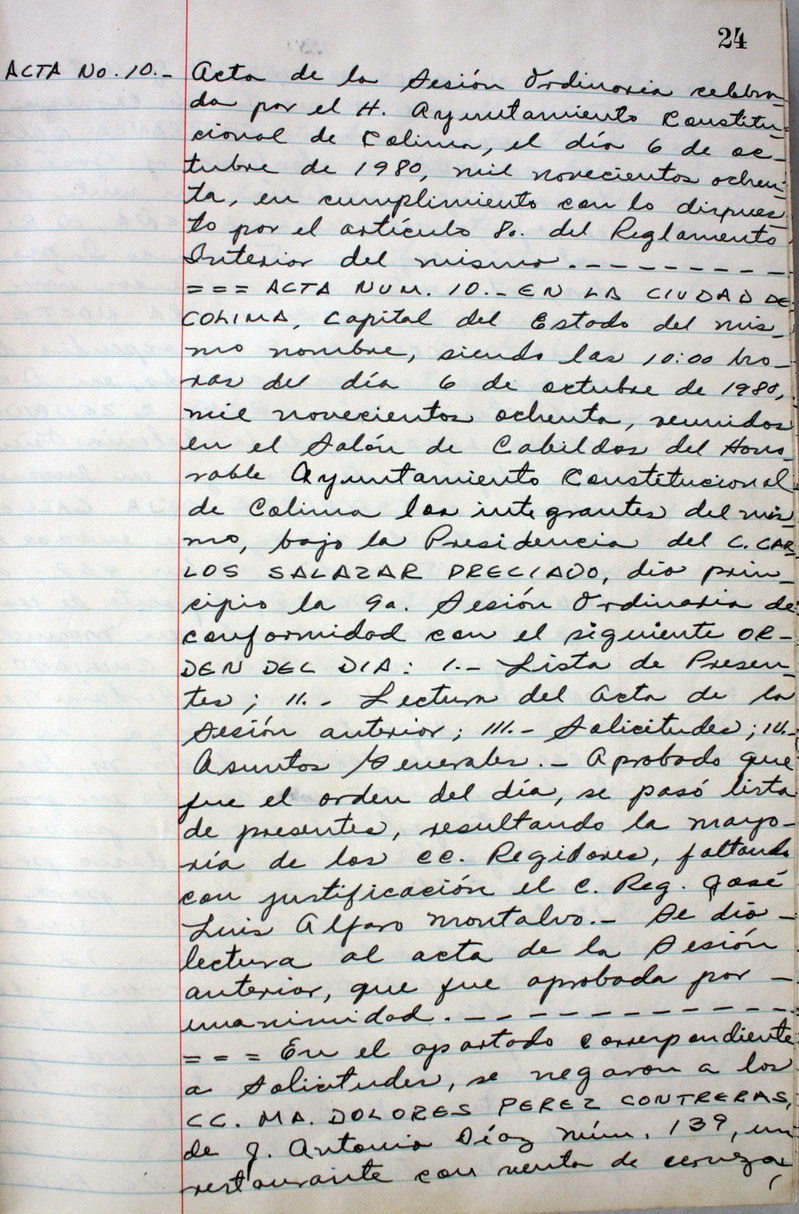 24
ACTA No. 10.- Acta de la Sesión Ordinaria celebra-
da por el H. Ayuntamiento Constitu-
cional de Colima, el día 6 de oc-
tubre de 1980, mil novecientos ochen-
ta, en cumplimiento con lo dispues-
to por el artículo 8o. del Reglamento
Interior del mismo.- - - - - - - - -
= = = ACTA NUM. 10.- EN LA CIUDAD DE
COLIMA, Capital del Estado del mis-
mo nombre, siendo las 10:00 ho-
ras del día 6 de octubre de 1980,
mil novecientos ochenta, reunidos
en el Salón de Cabildos del Hono-
rable Ayuntamiento Constitucional
de Colima los integrantes del mis-
mo, bajo la Presidencia del C. CAR-
LOS SALAZAR PRECIADO, dio prin-
cipio la 9a. Sesión Ordinaria de
conformidad con el siguiente OR-
DEN DEL DIA: I.- Lista de Presen-
tes; II.- Lectura del Acta de la
Sesión anterior; III.- Solicitudes; IV.-
Asuntos Generales.- Aprobado que
fue el orden del día, se pasó lista
de presentes, resultando la mayo-
ría de los CC. Regidores, faltando
con justificación el C. Reg. José
Luis Alfaro Montalvo.- Se dio -
lectura al acta de la Sesión
anterior, que fue aprobada por -
unanimidad.- - - - - - - - - - - -
= = = En el apartado correspondiente
a Solicitudes, se negaron a los
CC. MA. DOLORES PEREZ CONTRERAS,
de J. Antonio Díaz núm. 139, un
restaurante con venta de cerveza,